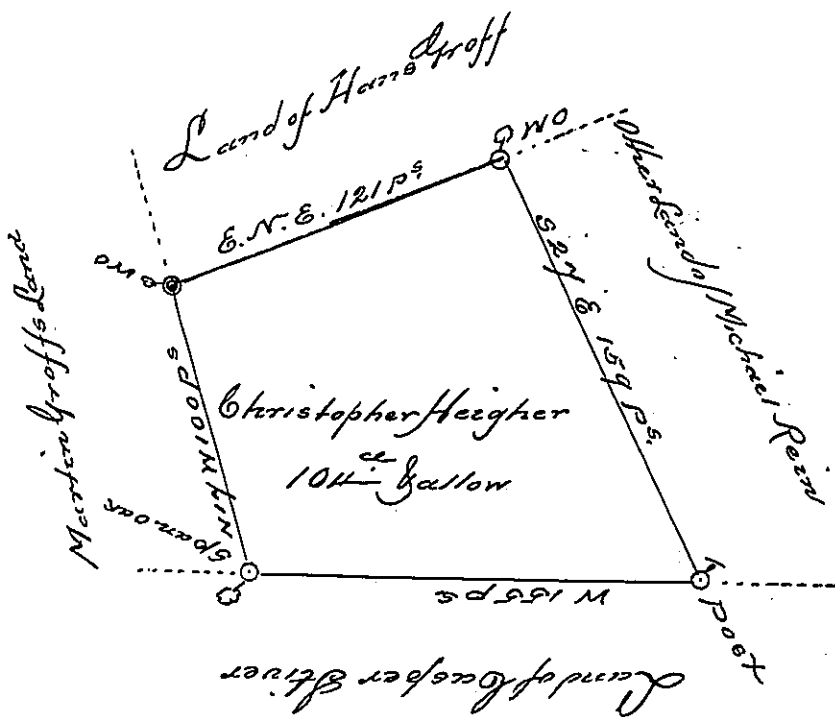 Land of Hans Groff
E.N.E. 121 Ps.
WO
Other Land of Michael Rein
S 27 E 159 Ps.
WO
Martin Groffs Land
N 14 W 100 Ps
Christopher Heigher
104 ac & allow
Span oak
W 155 ps
Post
Land of Casper Stiver